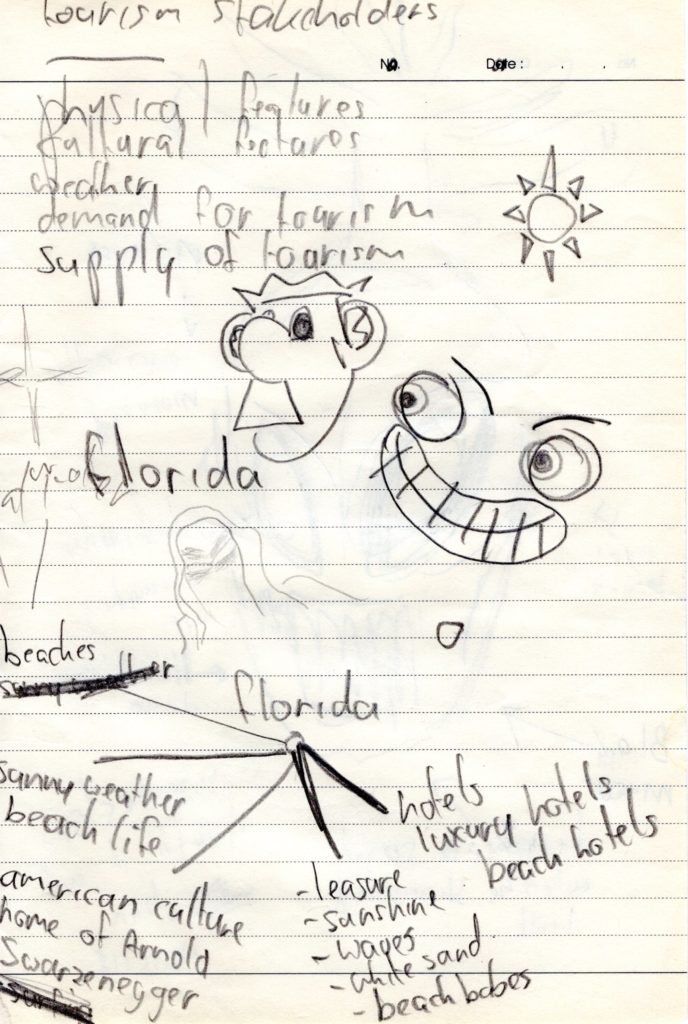 tourism stakeholders
No. Date :
physical features
cultural features
weather
demand for tourism
supply of tourism
florida
beaches
florida
sunny weather
beach life
hotels
luxury hotels
beach hotels
american culture
home of Arnold
Swarzenegger
surfing
-leasure
-sunshine
-waves
-white sand
-beach babes